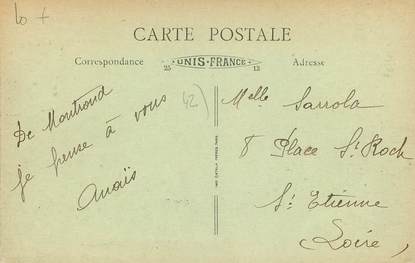 lo +
CARTE POSTALE
Correspondance
25 UNIS-FRANCE 13
Adresse
De Montrond
je pense à vous
Anaïs
42)
Melle Sarrola
8 Place St Roch
St Etienne
(Loire)